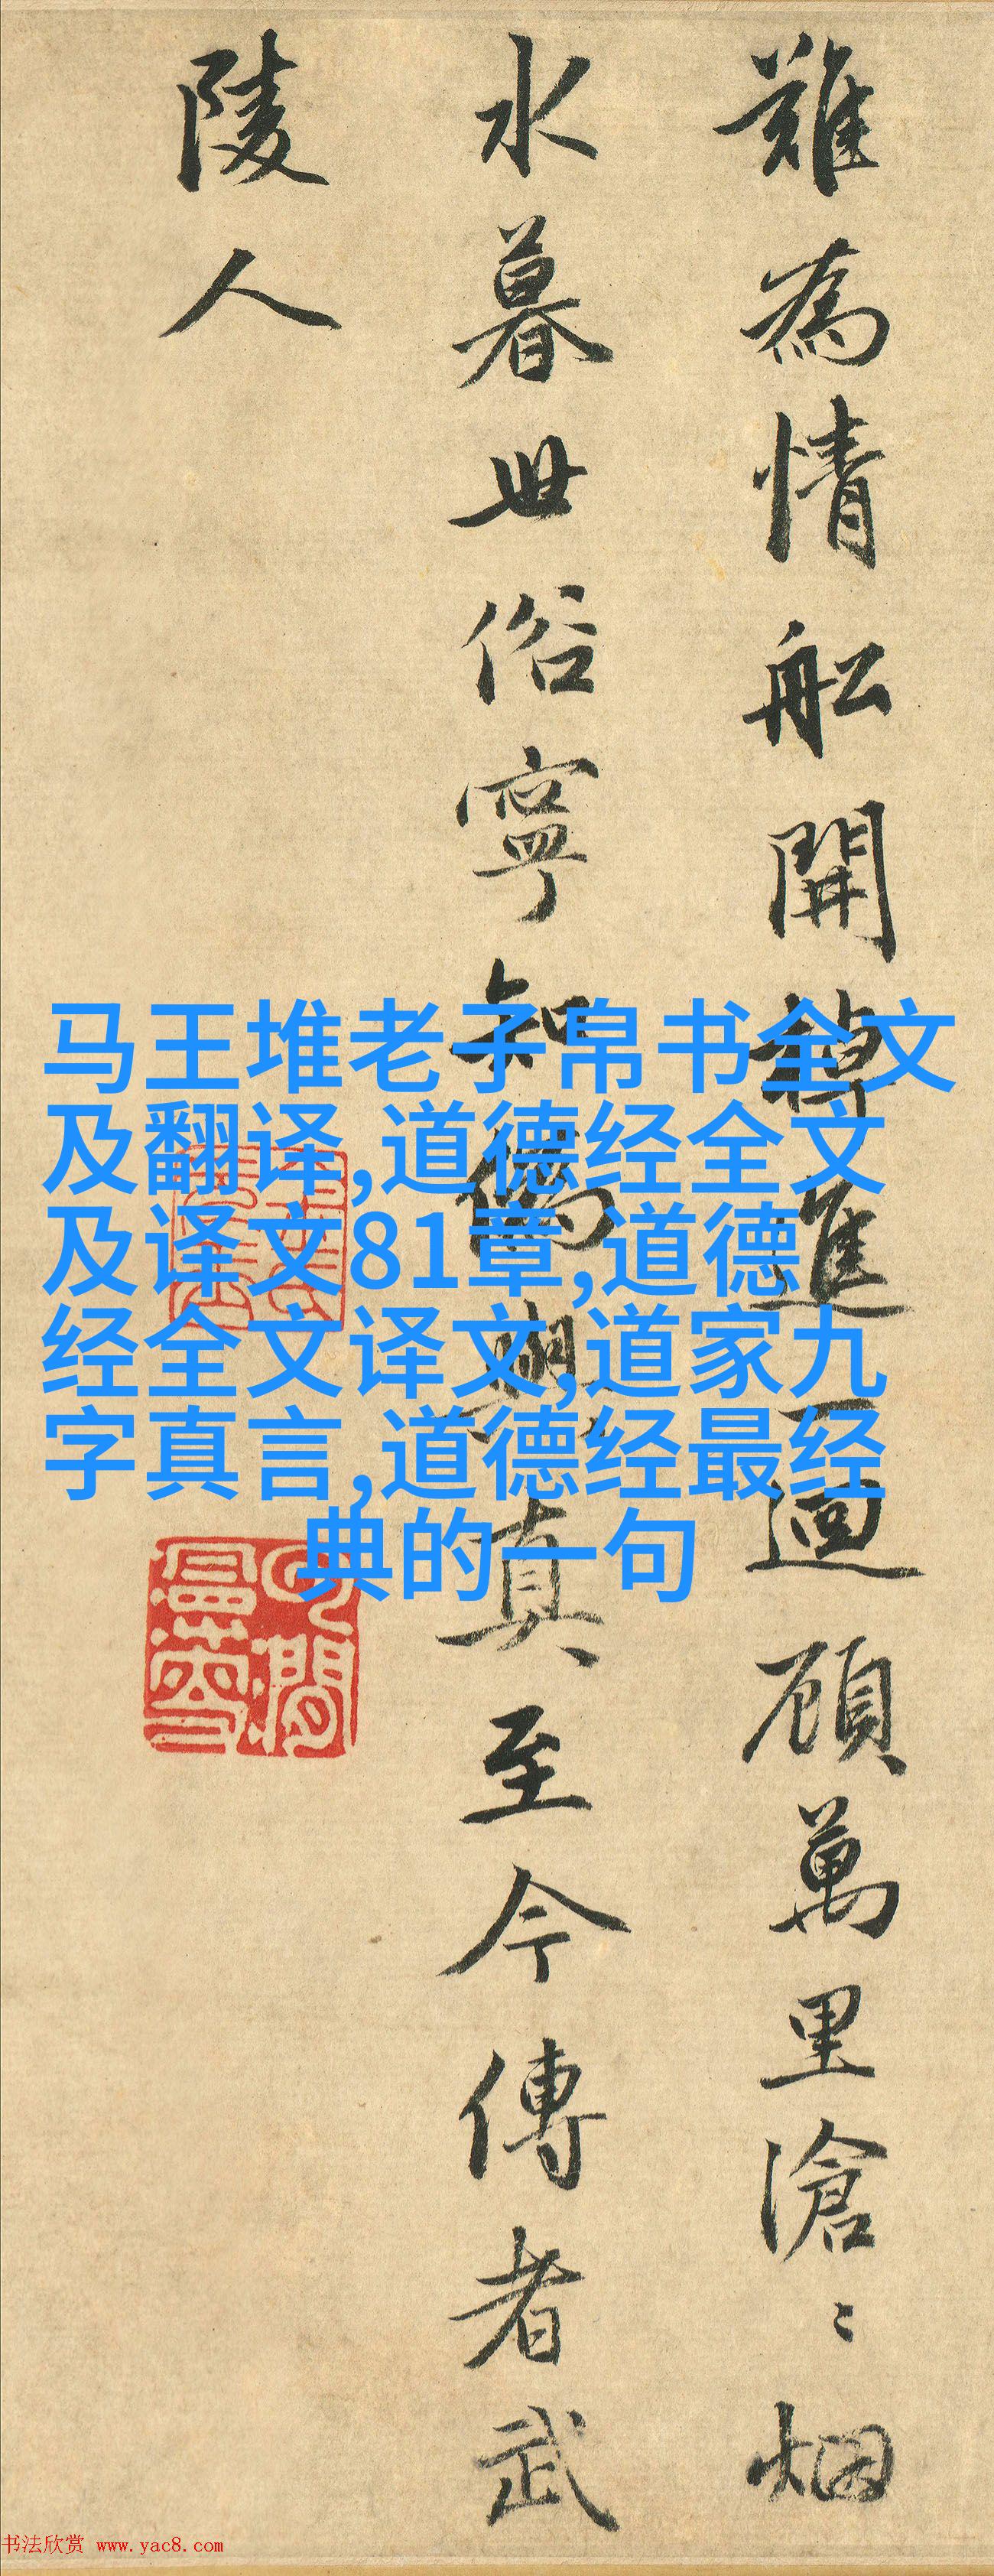 難為情舩開棹進一迴顧萬里滄〻烟
水暮世俗寧知偽與真至今傳者武
陵人
马王堆老子帛书全文
及翻译,道德经全文
及译文81章,道德
经全文译文,道家九
字真言,道德经最经
典的一句
书法欣赏 www.yac8.com